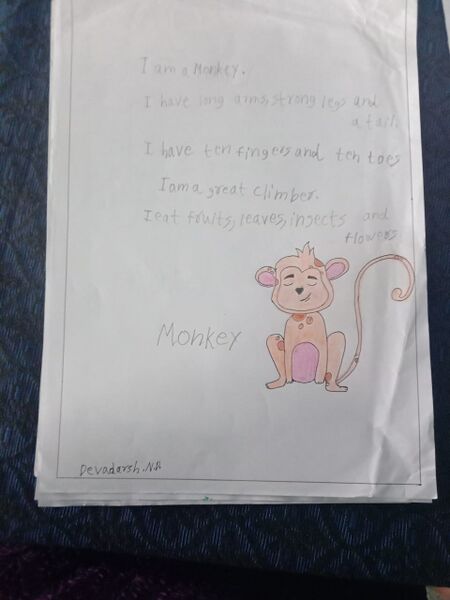 I am a Monkey.
I have long arms, strong legs and
a tail.
I have ten fingers and ten toes
I am a great climber.
I eat fruits, leaves, insects and
flowers
Monkey
Devadarsh.N.R